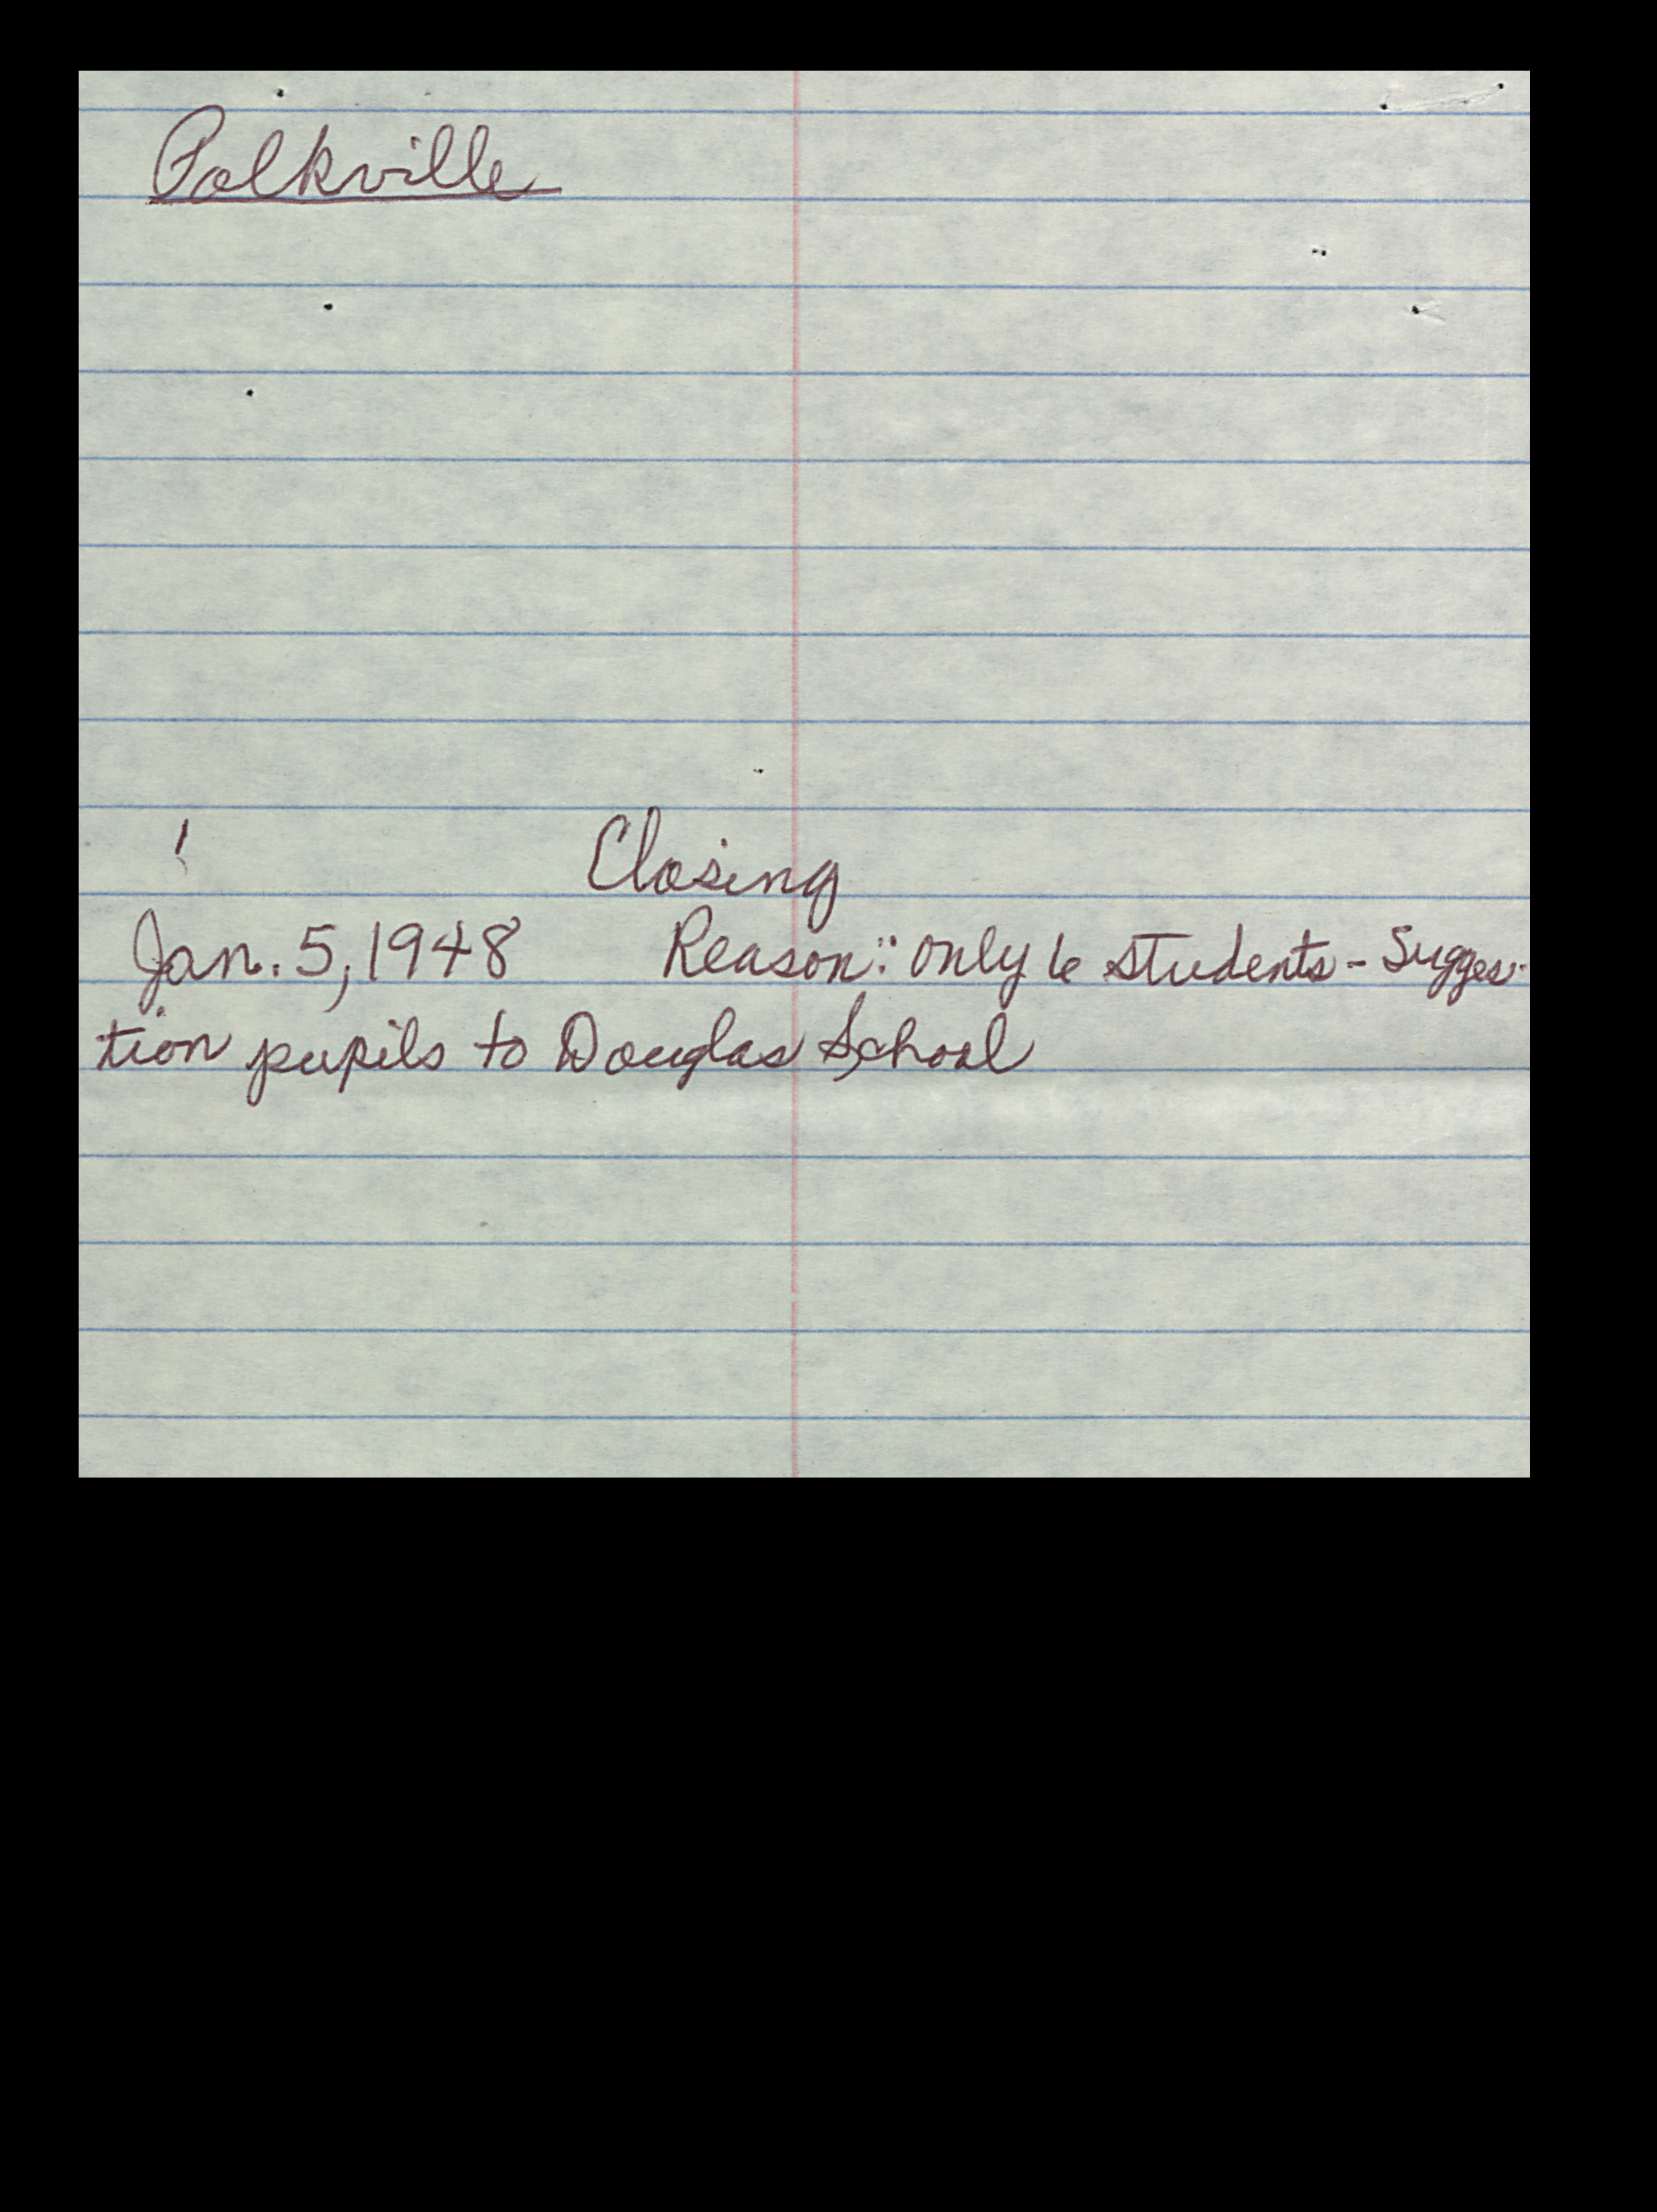 Polkville
Closing
Jan. 5, 1948 Reason: only 6 students - Sugges-
tion pupils to Douglas School